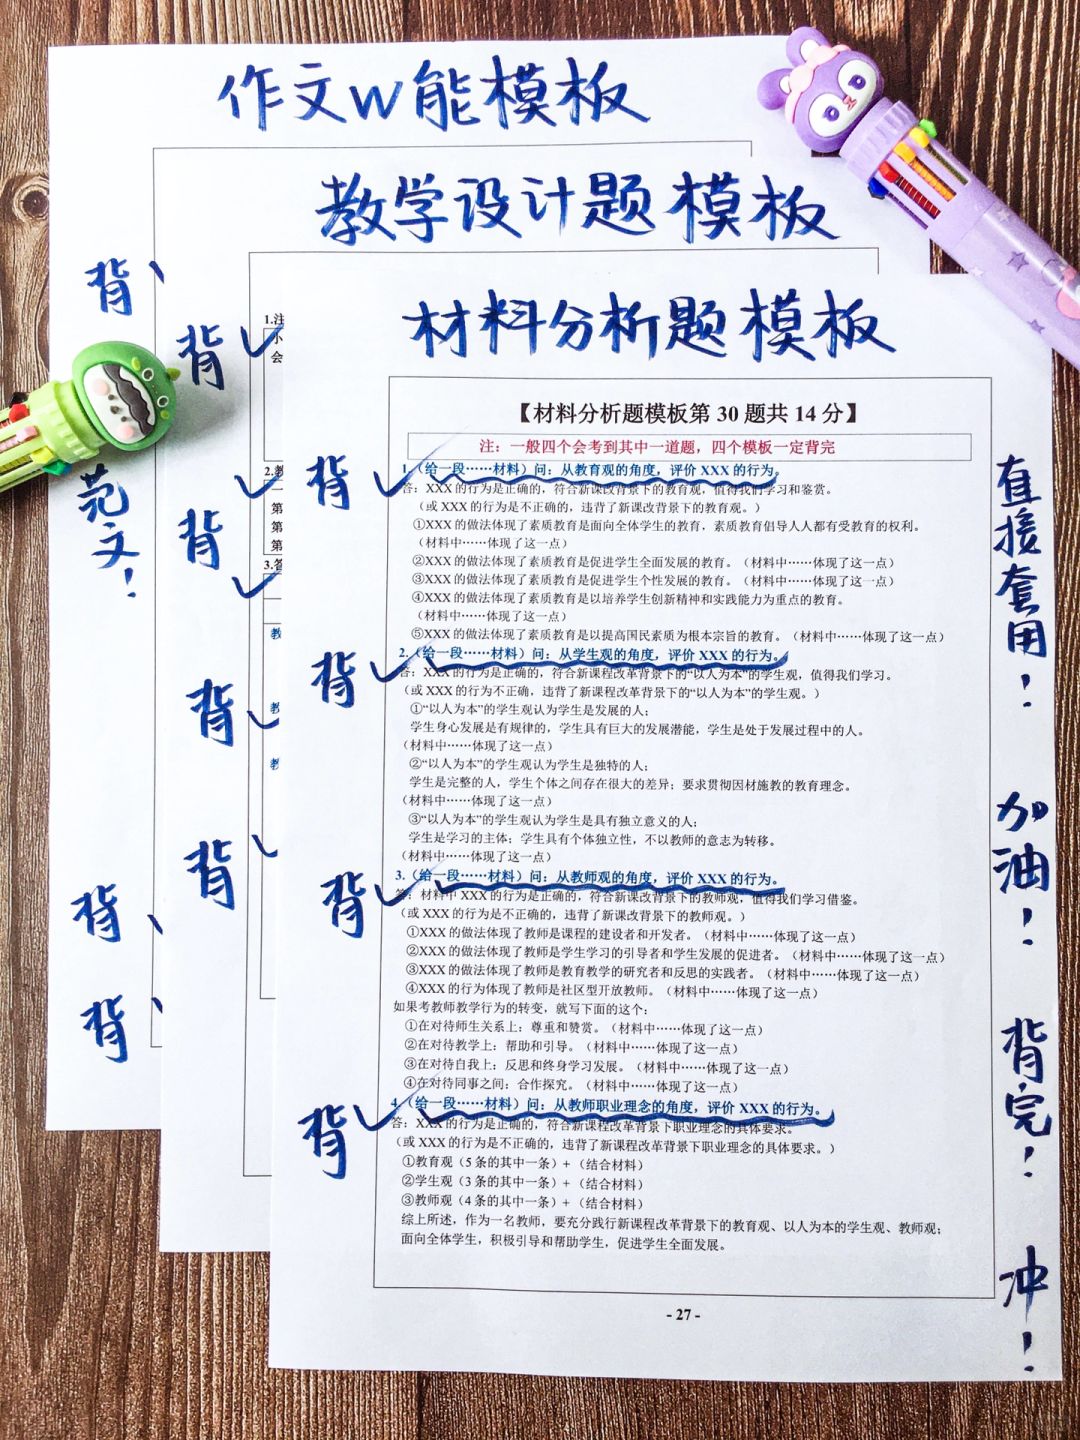 作文w能模板
教学设计题模板
材料分析题模板
背
背
范文！
背
背
背
背
背
1.注
小
会
2.教
一
第
第
第
3.答
教
教
教
背
背
背
背
【材料分析题模板第 30 题共 14 分】
注：一般四个会考到其中一道题，四个模板一定背完
1.（给一段……材料）问：从教育观的角度，评价 XXX 的行为。
答：XXX 的行为是正确的，符合新课改背景下的教育观，值得我们学习和鉴赏。
（或 XXX 的行为是不正确的，违背了新课改背景下的教育观。）
①XXX 的做法体现了素质教育是面向全体学生的教育，素质教育倡导人人都有受教育的权利。
（材料中……体现了这一点）
②XXX 的做法体现了素质教育是促进学生全面发展的教育。（材料中……体现了这一点）
③XXX 的做法体现了素质教育是促进学生个性发展的教育。（材料中……体现了这一点）
④XXX 的做法体现了素质教育是以培养学生创新精神和实践能力为重点的教育。
（材料中……体现了这一点）
⑤XXX 的做法体现了素质教育是以提高国民素质为根本宗旨的教育。（材料中……体现了这一点）
2.（给一段……材料）问：从学生观的角度，评价 XXX 的行为。
答：XXX 的行为是正确的，符合新课程改革背景下的“以人为本”的学生观，值得我们学习。
（或 XXX 的行为不正确，违背了新课程改革背景下的“以人为本”的学生观。）
①“以人为本”的学生观认为学生是发展的人；
学生身心发展是有规律的，学生具有巨大的发展潜能，学生是处于发展过程中的人。
（材料中……体现了这一点）
②“以人为本”的学生观认为学生是独特的人；
学生是完整的人，学生个体之间存在很大的差异；要求贯彻因材施教的教育理念。
（材料中……体现了这一点）
③“以人为本”的学生观认为学生是具有独立意义的人；
学生是学习的主体；学生具有个体独立性，不以教师的意志为转移。
（材料中……体现了这一点）
3.（给一段……材料）问：从教师观的角度，评价 XXX 的行为。
答：材料中 XXX 的行为是正确的，符合新课改背景下的教师观，值得我们学习借鉴。
（或 XXX 的行为是不正确的，违背了新课改背景下的教师观。）
①XXX 的做法体现了教师是课程的建设者和开发者。（材料中……体现了这一点）
②XXX 的做法体现了教师是学生学习的引导者和学生发展的促进者。（材料中……体现了这一点）
③XXX 的做法体现了教师是教育教学的研究者和反思的实践者。（材料中……体现了这一点）
④XXX 的行为体现了教师是社区型开放教师。（材料中……体现了这一点）
如果考教师教学行为的转变，就写下面的这个：
①在对待师生关系上：尊重和赞赏。（材料中……体现了这一点）
②在对待教学上：帮助和引导。（材料中……体现了这一点）
③在对待自我上：反思和终身学习发展。（材料中……体现了这一点）
④在对待同事之间：合作探究。（材料中……体现了这一点）
4.（给一段……材料）问：从教师职业理念的角度，评价 XXX 的行为。
答：XXX 的行为是正确的，符合新课程改革背景下职业理念的具体要求。
（或 XXX 的行为是不正确的，违背了新课程改革背景下职业理念的具体要求。）
①教育观（5 条的其中一条）+（结合材料）
②学生观（3 条的其中一条）+（结合材料）
③教师观（4 条的其中一条）+（结合材料）
综上所述，作为一名教师，要充分践行新课程改革背景下的教育观、以人为本的学生观、教师观；
面向全体学生，积极引导和帮助学生，促进学生全面发展。
- 27 -
直接套用！
加油！
背完！
冲！